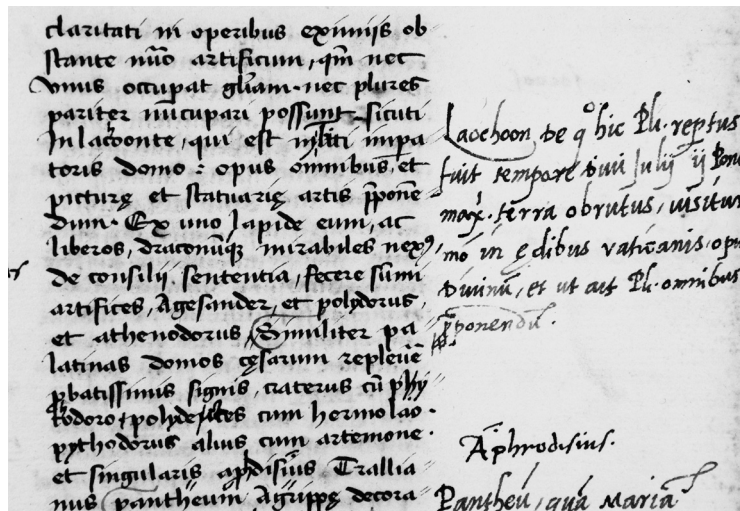 claritati in operibus eximijs ob
stante nũo artificum, qm̃ nec
vnus occupat gl̃iam. nec plures
pariter nũcupari possunt. sicuti
in lacoonte, qui est titi impa
toris domo: opus omnibus, et
picturę et statuarię artis p̃ponẽ
dum. Ex uno lapide eum, ac
liberos, draconũq; mirabiles nexꝰ
de consilij sententia, fecere sũmi
artifices, Agesander, et polydorus,
et athenodorus, Similiter pa
latinas domos cęsarum replevẽ
ꝓbatissimis signis, craterus cũ phy
todoro, polydectes cum hermolao.
pythodorus alius cum artemone.
et singularis aphrdisiũs Trallia
nus pantheum Agrippę decora
Laochoon de q° hic Pli. reptus
fuit tempore diui Julij ij Pont
max̃. terra obrutus, uisitur
mõ in ędibus vaticanis. opꝰ
diuinũ, et ut ait Pli. omnibus
p̃ponendũ.
Aphrodisius.
Pantheũ, quã Mariã